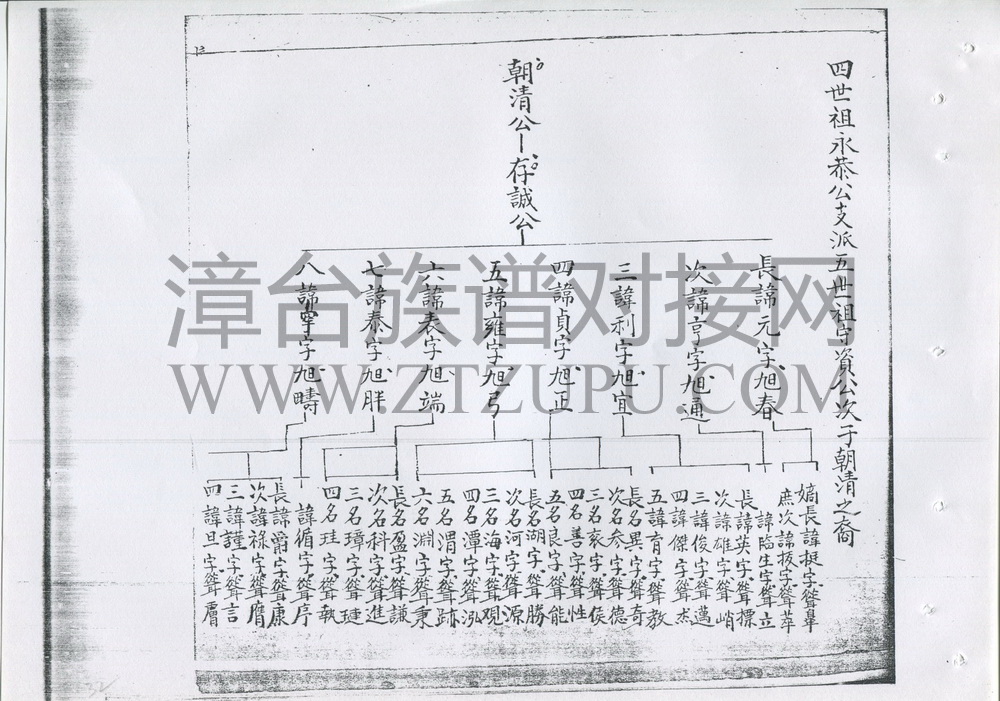 四世祖永恭公支派五世祖守資公次子朝清之裔
朝清公
存誠公
長諱元字旭春
次諱亨字旭通
三諱利字旭宜
四諱貞字旭正
五諱雍字旭弓
六諱表字旭端
七諱泰字旭胖
八諱寧字旭疇
嫡長諱挺字聳皐
庶次諱拔字聳萃
諱臨生字聳立
長諱英字聳標
次諱雄字聳峭
三諱俊字聳邁
四諱傑字聳杰
五諱育字聳教
長名異字聳奇
次名参字聳德
三名家字聳侯
四名善字聳性
五名良字聳能
長名湖字聳勝
次名河字聳源
三名海字聳观
四名潭字聳泓
五名渭字聳跡
六名淵字聳秉
長名盈字聳謙
次名科字聳進
三名璋字聳璉
四名珪字聳執
諱循字聳序
長諱爵字聳康
次諱祿字聳膺
三諱謹字聳言
四諱旦字聳
漳台族谱对接网
WWW.ZTZUPU.COM
32